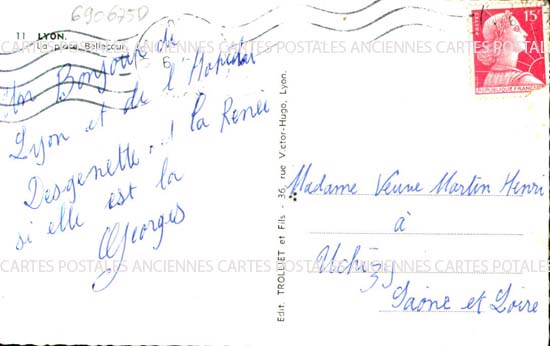 690675D
11 LYON.
La place Bellecour
Un Bonjour de
Lyon et de l'Hopital
Desgenette, à la Renée
si elle est la
Georges
Edit. TROLLIET et Fils - 36, rue Victor-Hugo, Lyon.
15F
POSTES
REPUBLIQUE FRANÇAISE
Madame Veuve Martin Henri
à
Uchizy
Saône et Loire
CARTES POSTALES ANCIENNES CARTES POSTALES ANCIENNES CARTES POSTALES
CARTES ANCIENNES CARTES POSTALES ANCIENNES CARTES POSTALES